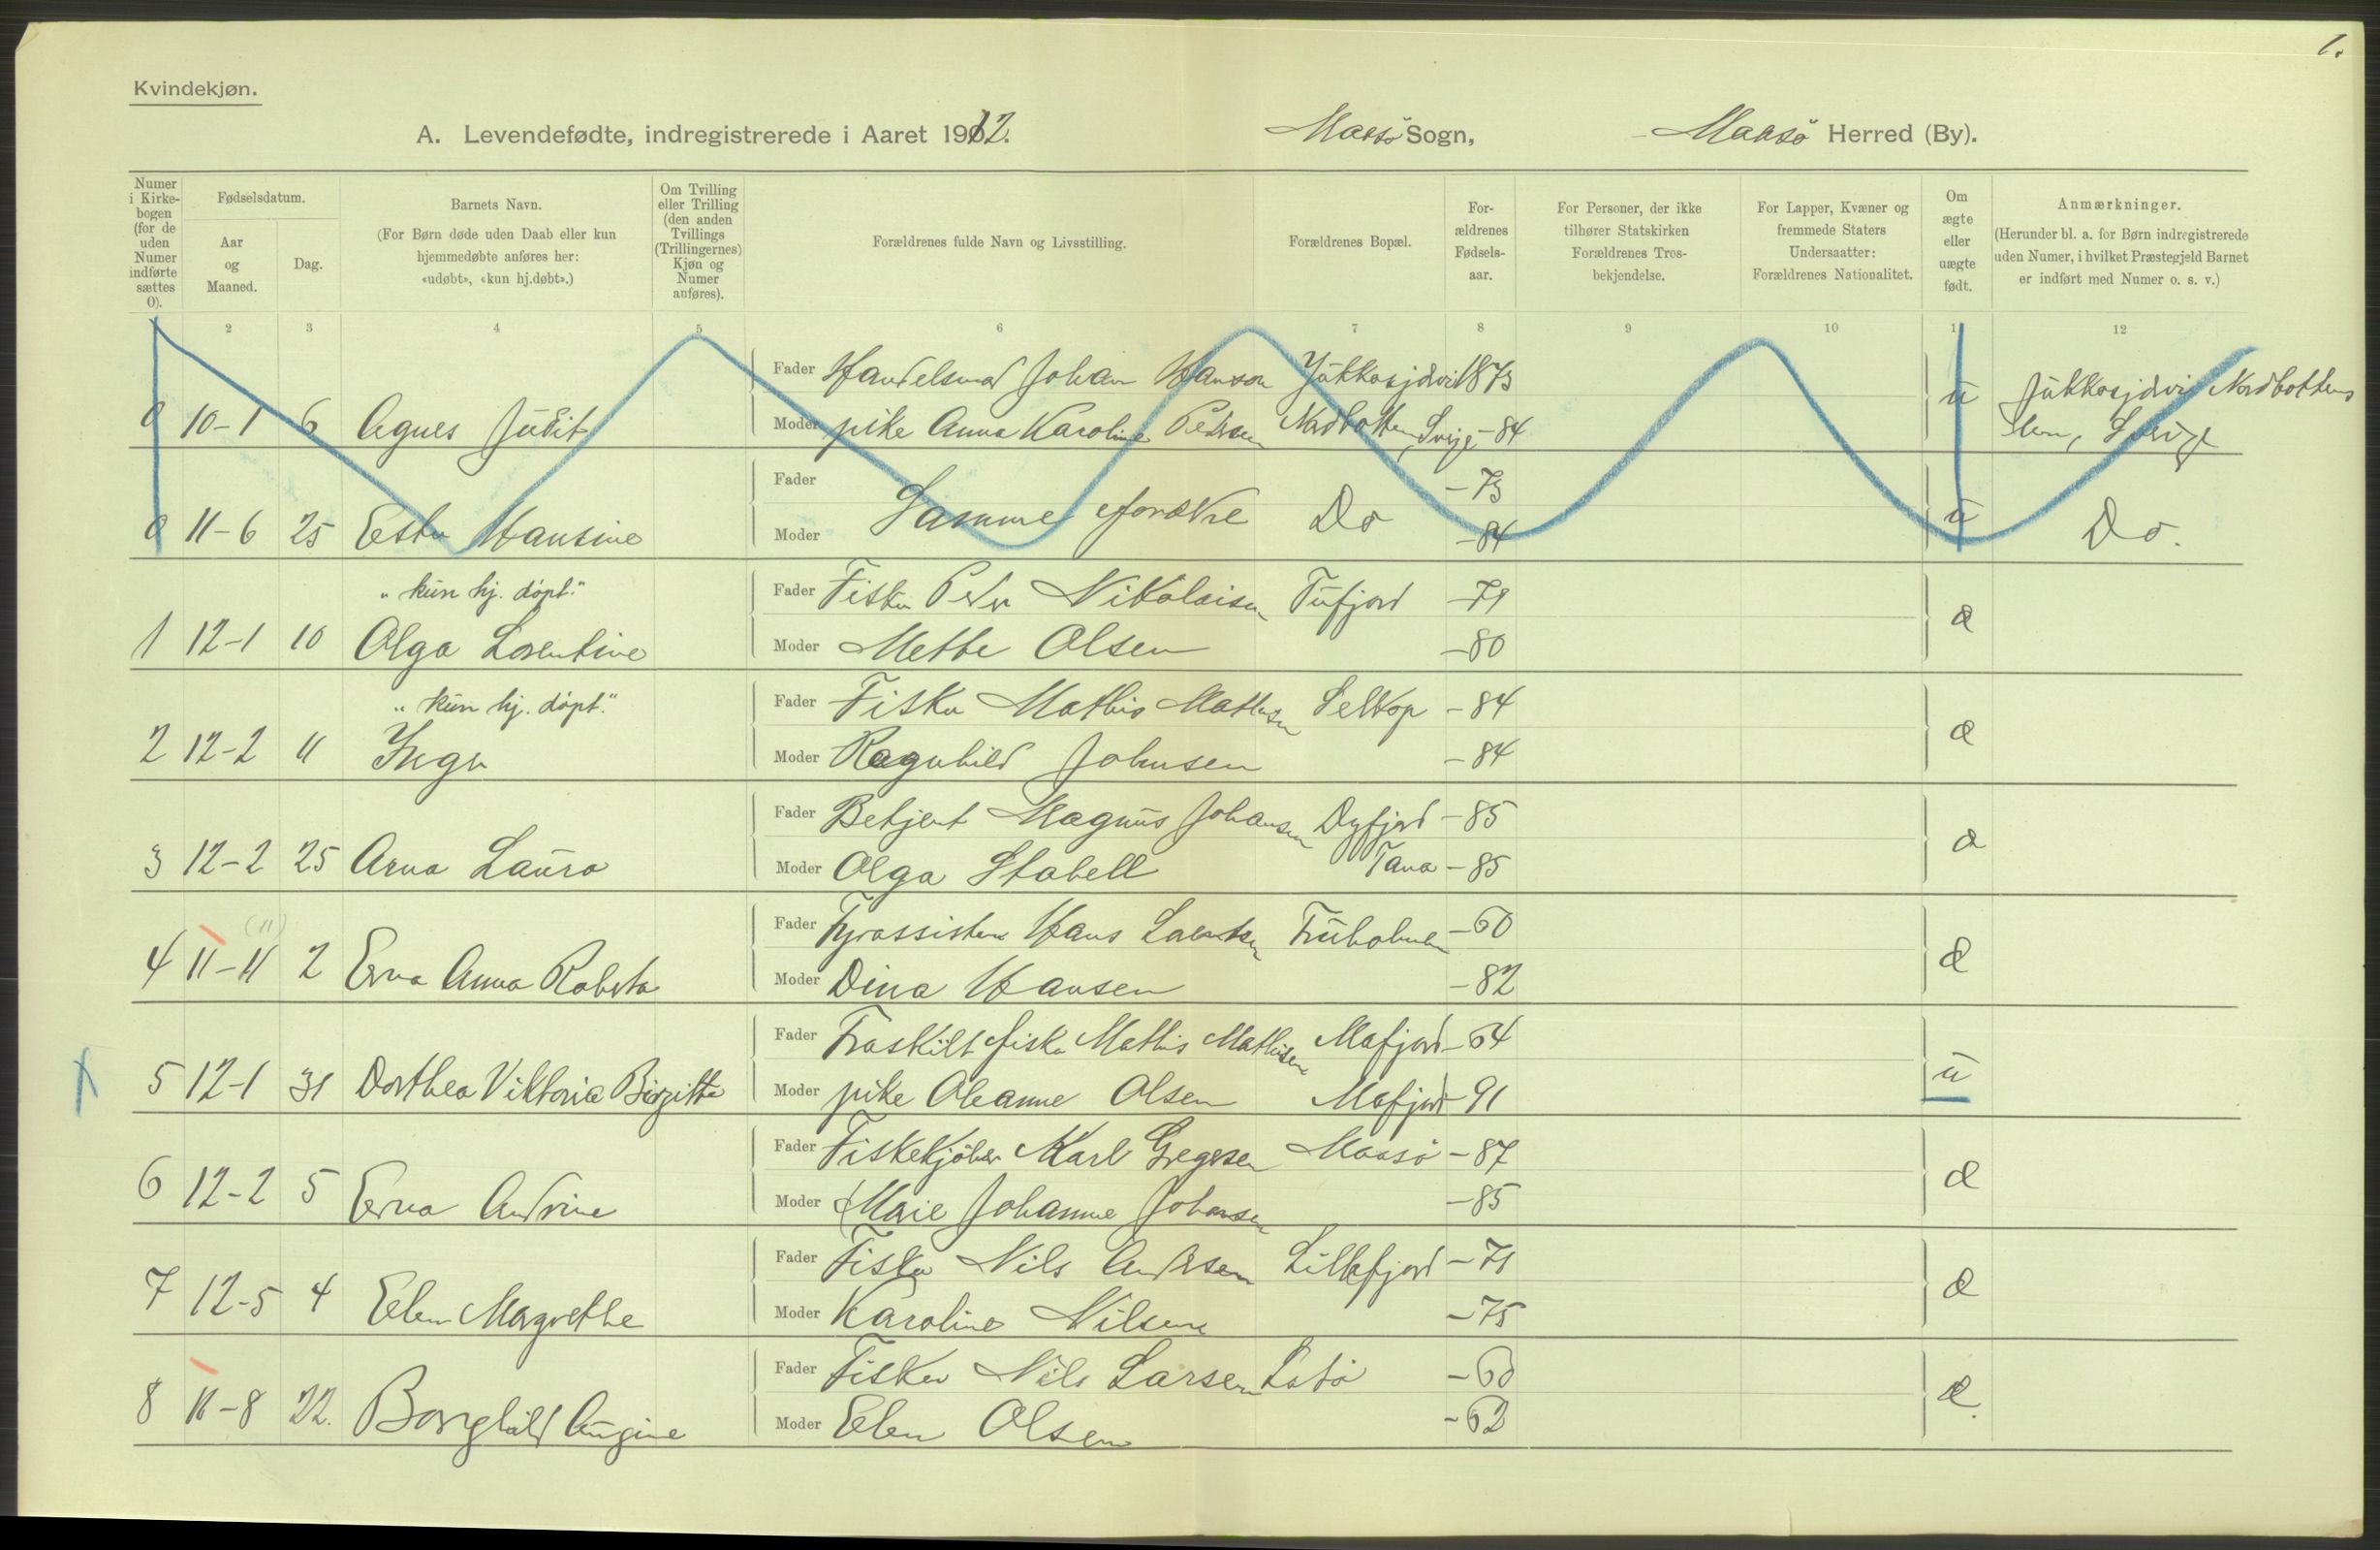 1.
Kvindekjøn.
A. Levendefødte, indregistrerede i Aaret 1912.
Maasö Sogn,
Maasö Herred (By).
Numer i Kirke-bogen (for de uden Numer indførte sættes 0).
Fødselsdatum.
Aar og Maaned.
Dag.
Barnets Navn.
(For Børn døde uden Daab eller kun
hjemmedøbte anføres her:
«udøbt», «kun hj.døbt».)
Om Tvilling
eller Trilling
(den anden
Tvillings
(Trillingernes)
Kjøn og
Numer
anføres).
Forældrenes fulde Navn og Livsstilling.
Forældrenes Bopæl.
For-
ældrenes
Fødsels-
aar.
For Personer, der ikke
tilhører Statskirken
Forældrenes Tros-
bekjendelse.
For Lapper, Kvæner og
fremmede Staters
Undersaatter:
Forældrenes Nationalitet.
Om
ægte
eller
uægte
født.
Anmærkninger.
(Herunder bl. a. for Børn indregistrerede
uden Numer, i hvilket Præstegjeld Barnet
er indført med Numer o. s. v.)
2 3 4 5 6 7 8 9 10 1 12
Fader Handelsmd Johan Hanson Jükkasjärvi 1873
0 10-1 6 Agnes Judit
Moder pike Anna Karoline Pedersen Nordbotten, Sverige -84
ü
Jükkasjärvi Nordbottens
len, Sverige
Fader -73
0 11-6 25 Ester Hansine
Samme forældre Do
Moder -84
ü Do.
"kün hj. döpt."
Fader Fisker Peder Nikolaisen Tüfjord -79
1 12-1 10 Olga Lorentine
Moder Mette Olsen -80
æ
"kün hj. döpt."
Fader Fisker Mathis Mathisen Selkop -84
2 12-2 11 Inger
Moder Ragnhild Johnsen -84
æ
Fader Betjent Magnüs Johansen Dyfjord -85
3 12-2 25 Arna Laüra
Moder Olga Stabell Tana -85
æ
(11)
Fader Fyrassistent Hans Lorentsen Früholmen -60
4 11-11 2 Erna Anna Roberta
Moder Dina Hansen -82
æ
Fader Fraskilt fisker Mathis Mathisen Mafjord -64
5 12-1 31 Dorthea Viktoria Birgitte
Moder pike Oleanne Olsen Mafjord -91
ü
Fader Fiskekjöber Karl Gregersen Maasö -87
6 12-2 5 Erna Andrine
Moder Marie Johanne Johansen -85
æ
Fader Fisker Nils Andersen Lillefjord -71
7 12-5 4 Elen Margrethe
Moder Karoline Nilsen -75
æ
Fader Fisker Nils Larsen Latö -60
8 11-8 22. Borghild Aügine
Moder Elen Olsen -62
æ.